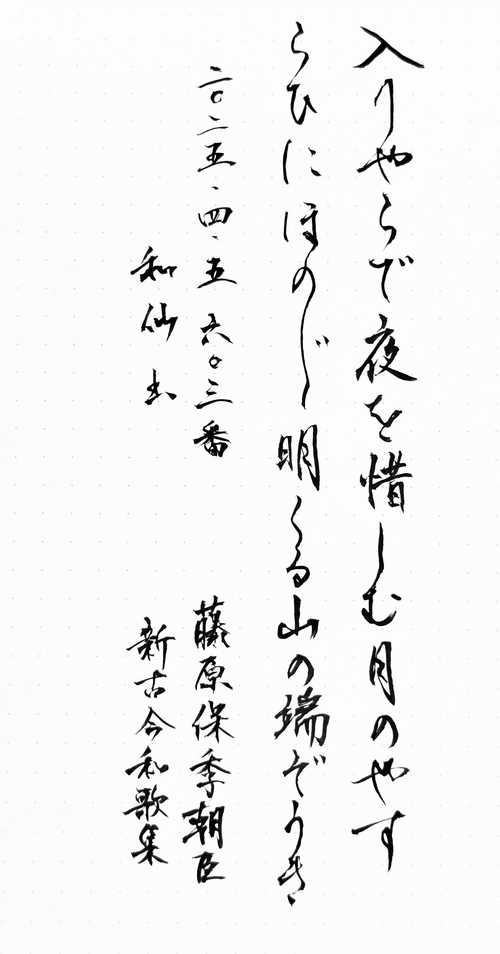 入りやらで夜を惜しむ月のやす
らひにほの〴〵明くる山の端ぞうき
二〇二五・四・五 六〇三番 藤原保季朝臣
和仙 新古今和歌集